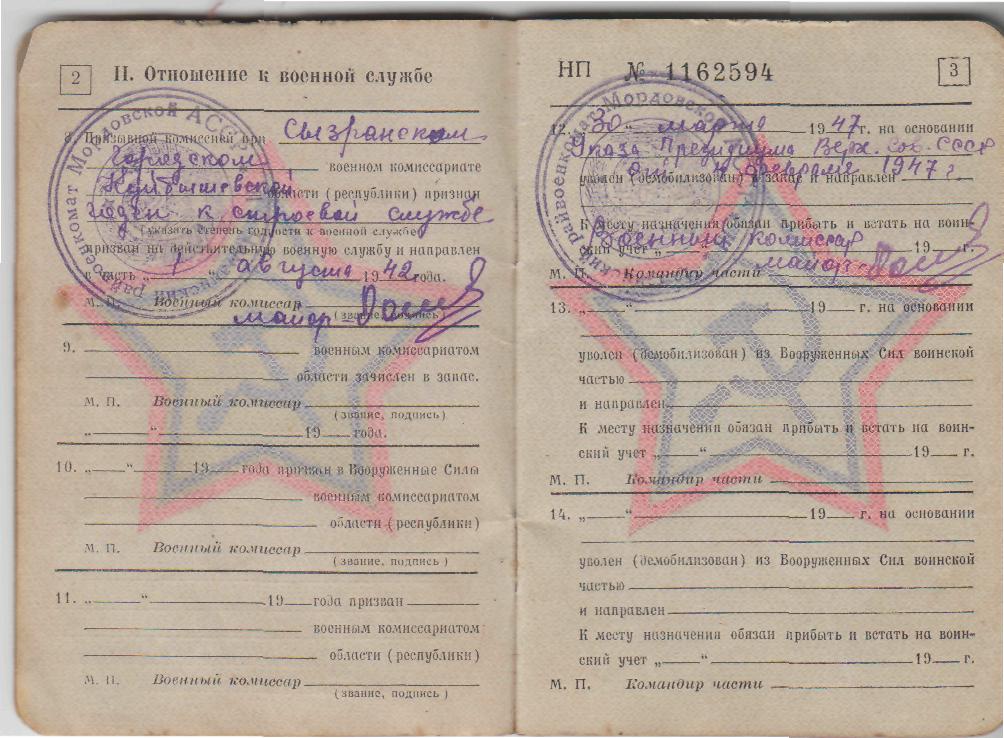 2
II. Отношение к военной службе
8. Призывной комиссией при Сызранском
городском военном комиссариате
Куйбышевской области (республики) признан
годен к строевой службе
(указать степень годности к военной службе)
призван на действительную военную службу и направлен
в часть „ 1 “ августа 1942 года.
М. П. Военный комиссар
майор
(звание, подпись)
9. военным комиссариатом
области зачислен в запас.
М. П. Военный комиссар
(звание, подпись)
„ “ 19 года.
10. „ “ 19 года призван в Вооруженные Силы
военным комиссариатом
области (республики)
М. П. Военный комиссар
(звание, подпись)
11. „ “ 19 года призван
военным комиссариатом
области (республики)
М. П. Военный комиссар
(звание, подпись)
Мордовской АССР
райвоенкомат
НП № 1162594
3
12. „ 30 “ марта 1947 г. на основании
Указа Президиума Верх. Сов. СССР
февраля 1947 г
уволен (демобилизован) в запас и направлен
К месту назначения обязан прибыть и встать на воин-
ский учет 19 г.
Военный комиссар
майор
М. П. Командир части
13. „ “ 19 г. на основании
уволен (демобилизован) из Вооруженных Сил воинской
частью
и направлен
К месту назначения обязан прибыть и встать на воин-
ский учет „ “ 19 г.
М. П. Командир части
14. „ “ 19 г. на основании
уволен (демобилизован) из Вооруженных Сил воинской
частью
и направлен
К месту назначения обязан прибыть и встать на воин-
ский учет „ “ 19 г.
М. П. Командир части
райвоенкомат Мордовской